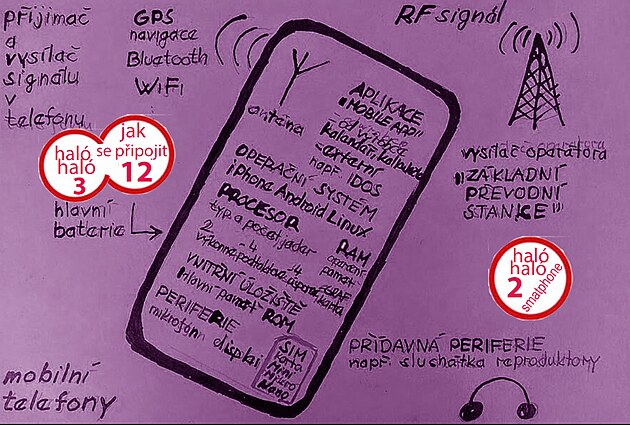 přijímač
a
vysílač
signálu
v
telefonu
GPS
navigace
Bluetooth
WiFi
RF signál
jak
se připojit
12
haló
haló
3
hlavní
baterie
anténa
APLIKACE
"MOBILE APP"
kalendář, kalkulačka
externí
např. IDOS
OPERAČNÍ SYSTÉM
iPhone Android Linux
PROCESOR
typ a počet jader
2 - 4
RAM
operační
paměť
VNITŘNÍ ÚLOŽIŠTĚ
hlavní paměť ROM
PERIFERIE
mikrofon displej
SIM
karta
Mini
Micro
Nano
vysílač operátora
"ZÁKLADNÍ
PŘEVODNÍ
STANICE"
haló
haló
2
smatphone
PŘÍDAVNÁ PERIFERIE
např. sluchátka reproduktory
mobilní
telefony